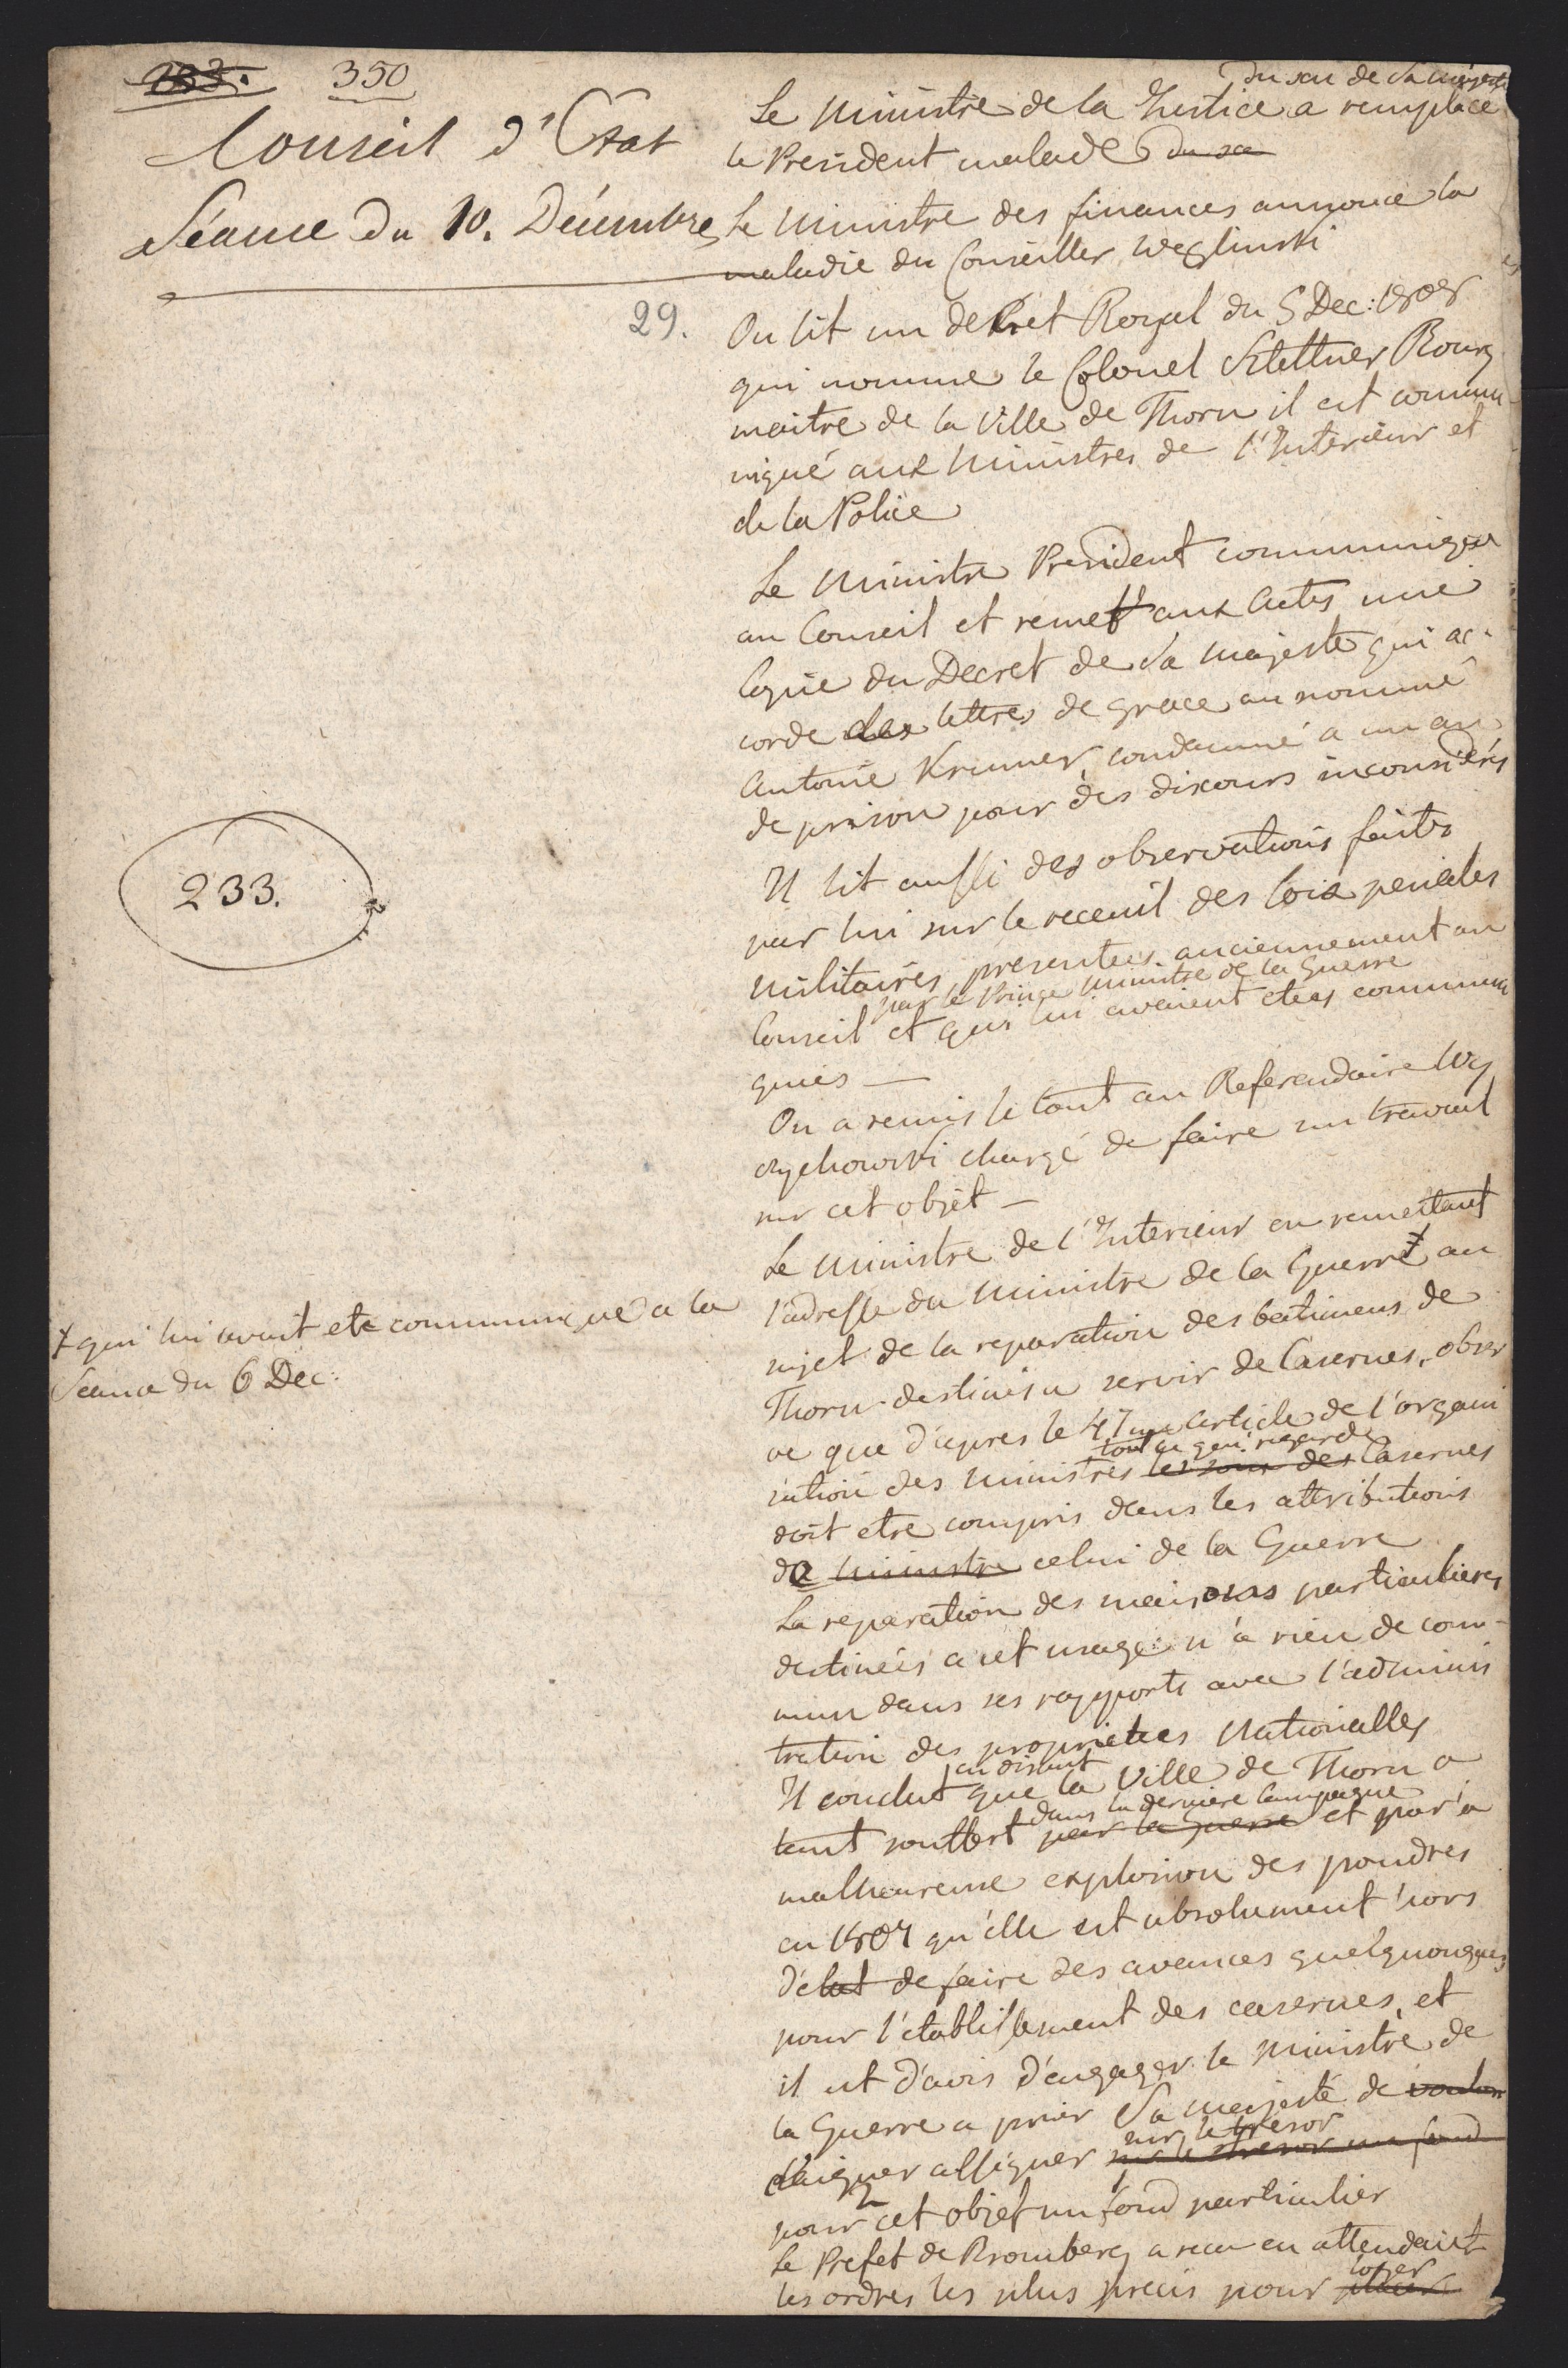 350
Conseil d'Etat
Séance du 10. Décembre
du scu de Sa Majesté
Le Ministre de la Justice a remplacé
le President malade
Le Ministre des finances annonce la
maladie du Conseiller Weglinski
29.
On lit un dekret Royal du 5 Dec: 1808
qui nomme le Colonel Stettner Bourg
maitre de la Ville de Thorn il est commu-
niqué aux Ministres de l'Interieur et
de la Police
Le Ministre President communique
au Conseil et remet aux Actes une
Copie du Decret de Sa Majesté qui ac-
corde des lettres de grace au nommé
Antoine Krumer condamné a un an
de prison pour des discours inconsidérés
233.
Il lit aussi des observations faites
par lui sur le receuil des loix penales
militaires presentées anciennement au
par le Prince Ministre de la Guerre
Conseil et qui lui avaient etees communi
quées —
On a remis le tout au Referendaire Wy
czechowski chargé de faire un travail
sur cet objet —
Le Ministre de l'Interieur en remettant
l'adresse du Ministre de la Guerre ‡ au
‡ qui lui avait eté communiqué a la
Seance du 6 Dec:
sujet de la reparation des batimens de
Thorn destinés a servir de Casernes, obser
ve que d'apres le 47me article de l'organi
tout ce qui regarde
sation des Ministres les soin des Casernes
doit etre compris dans les attributions
de Ministre celui de la Guerre
La reparation des maisons particulieres
destinées a cet usage n'a rien de com-
mun dans ses rapports avec l'adminis
tration des proprietees Nationalles
en disant
Il conclut que la Ville de Thorn a
dans la derniere Campagne
tant souffert par la guerre et par la
malheureuse explosion des poudres
en 1807 qu'elle est absolument hors
d'etat de faire des avances quelquonques
pour l'etablissement des casernes, et
il est d'avis d'engager le Ministre de
la Guerre a prier Sa Majesté de vouloir
sur le tresor
daigner assigner sur le tresor un fond
pour cet objet un fond particulier
Le Prefet de Bromberg a recu en attendant
loger
les ordres les plus precis pour placer